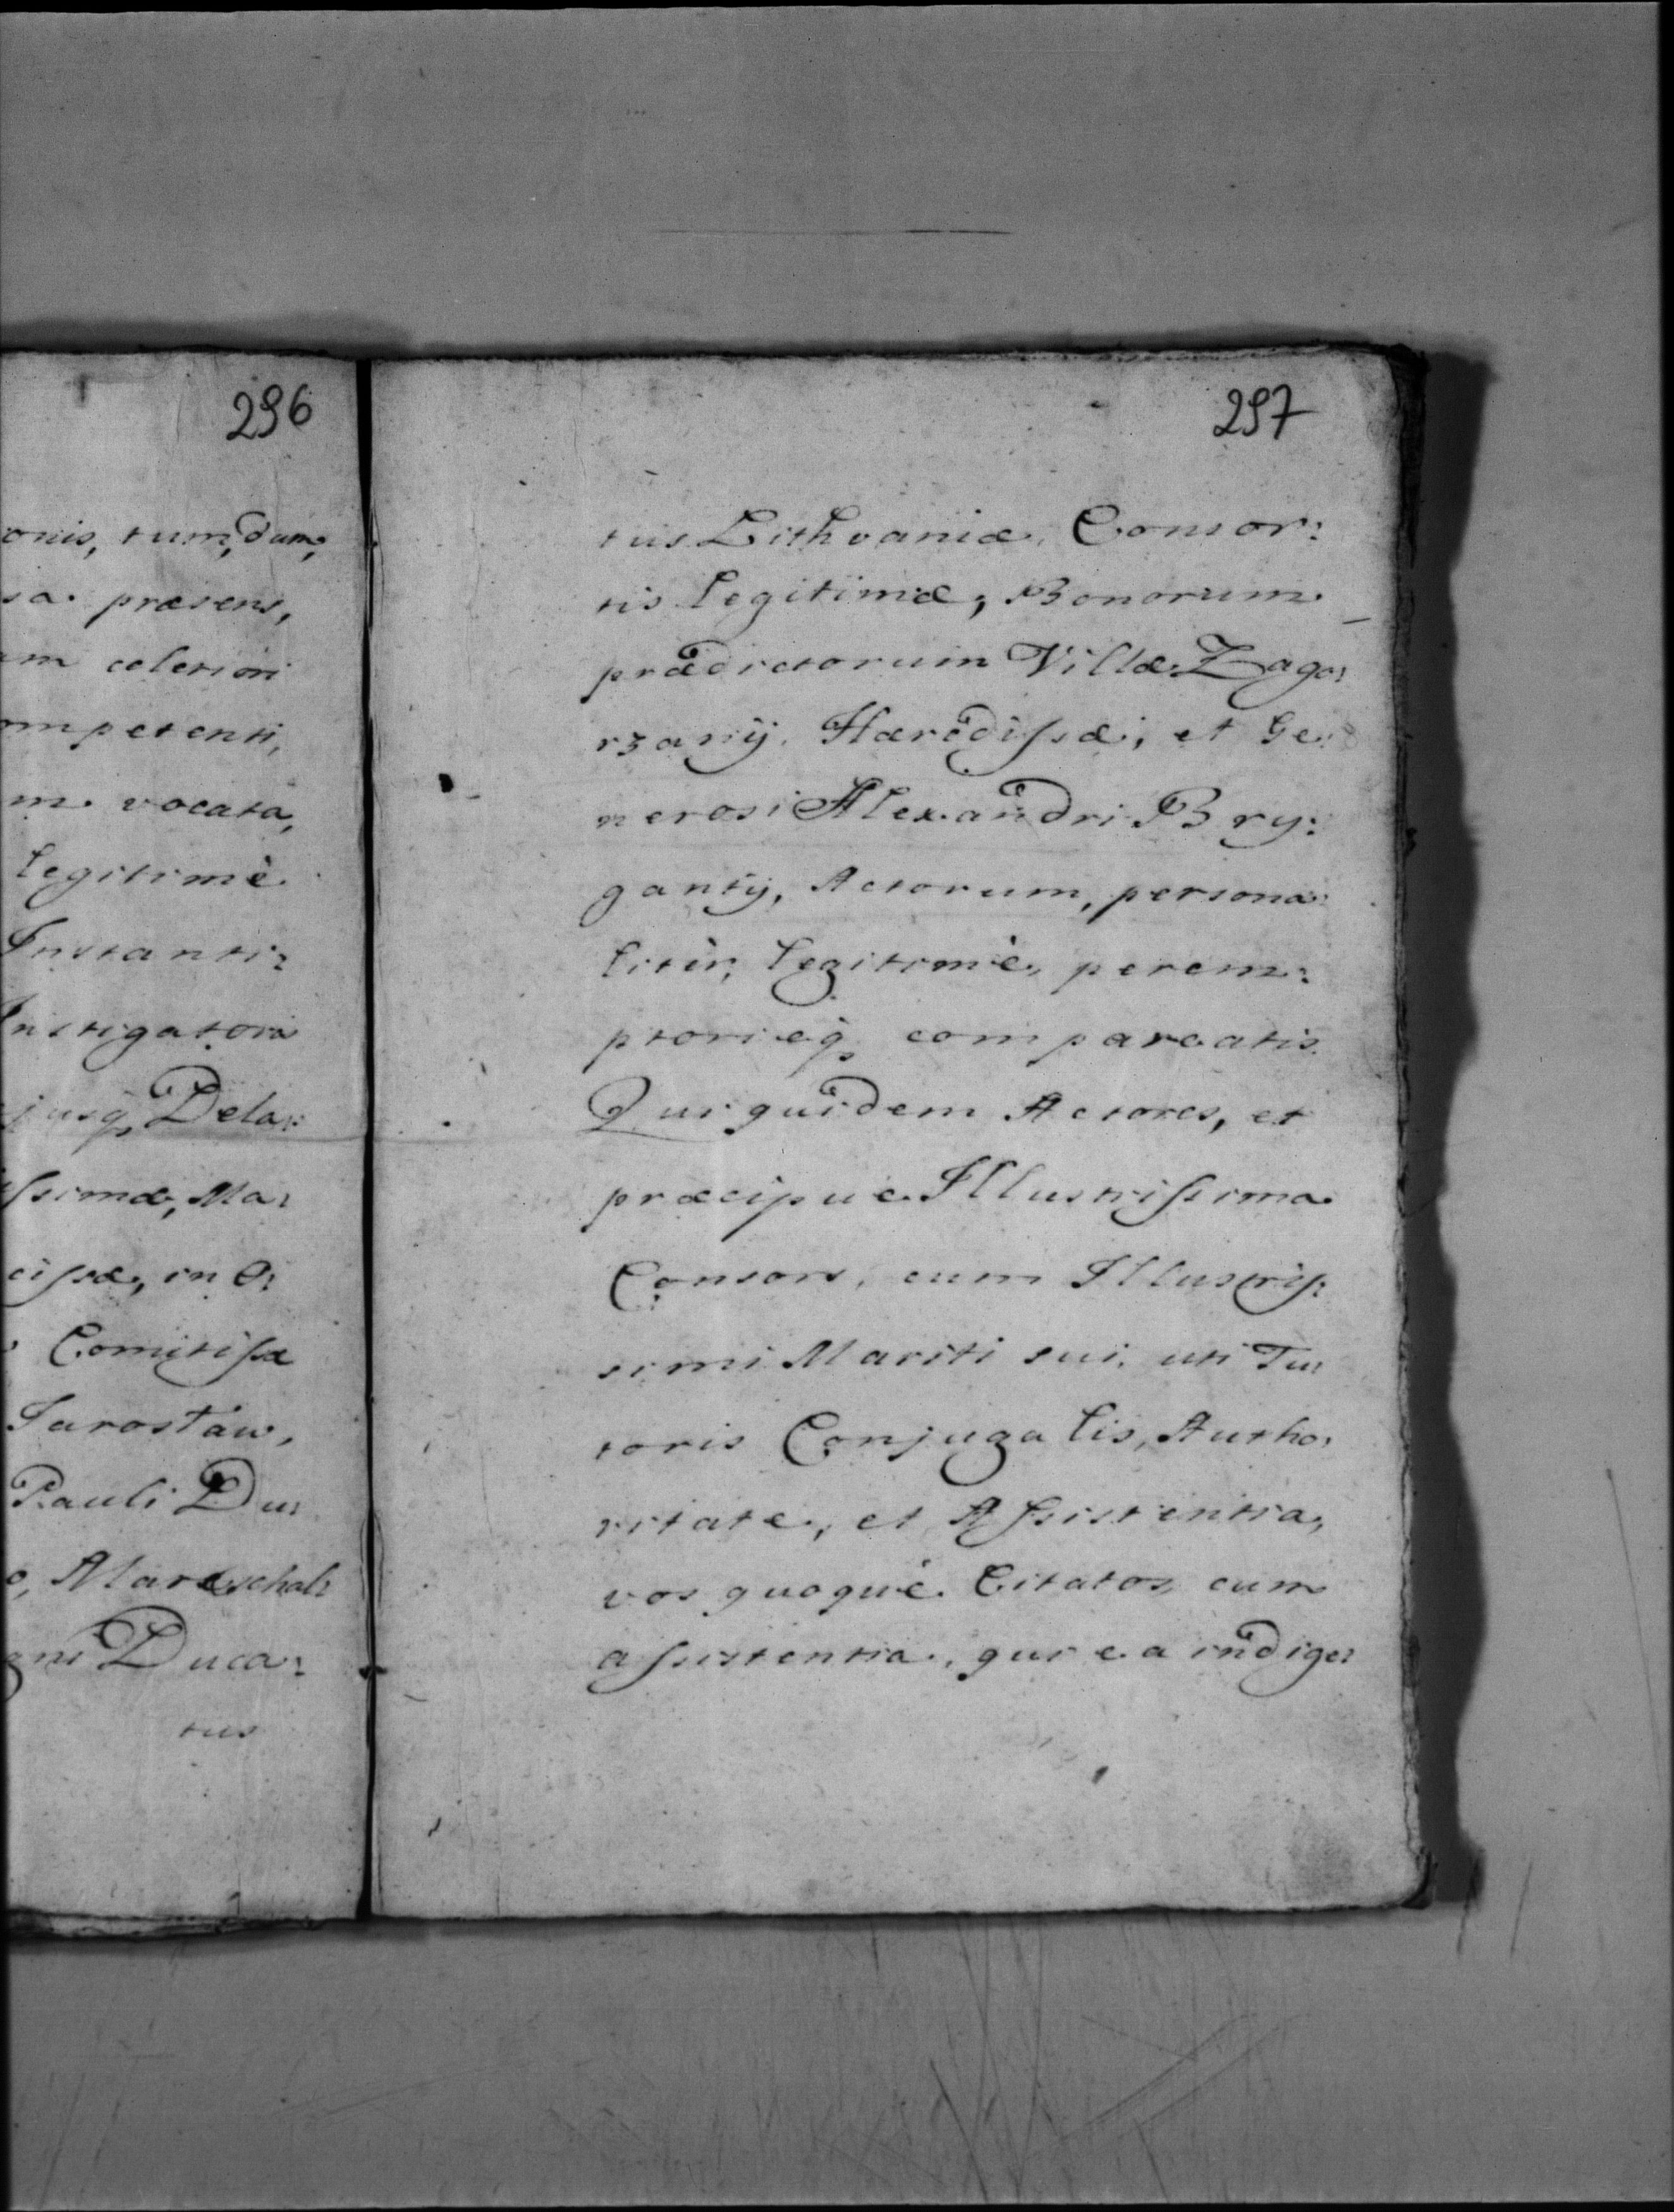 296
onis, tum, dum,
sa præsens,
um celeriori
ompetenti,
m vocata,
legitimè
Instanti:
Instigatoris
jusq, Dela:
ssimæ, Ma:
cissæ, in O:
Comitissæ
Jarosław,
Pauli Du:
o, Mareschal:
gni Duca:
tus
297
tus Lithvaniæ, Consor:
tis legitimæ, Bonorum
prædictorum Villæ Zago:
rzany, Hæredissæ, et Ge:
nerosi Alexandri Bry:
ganty, Actorum, persona:
litèr, legitimè, perem:
ptorieq, compareatis.
Qui quidem Actores, et
præcipue Illustrissima
Consors, cum Illustris:
simi Mariti sui, uti Tu:
toris Conjugalis, Autho:
ritate, et Assistentia,
vos quoquè Citatos, cum
assistentia, qui ea indige: